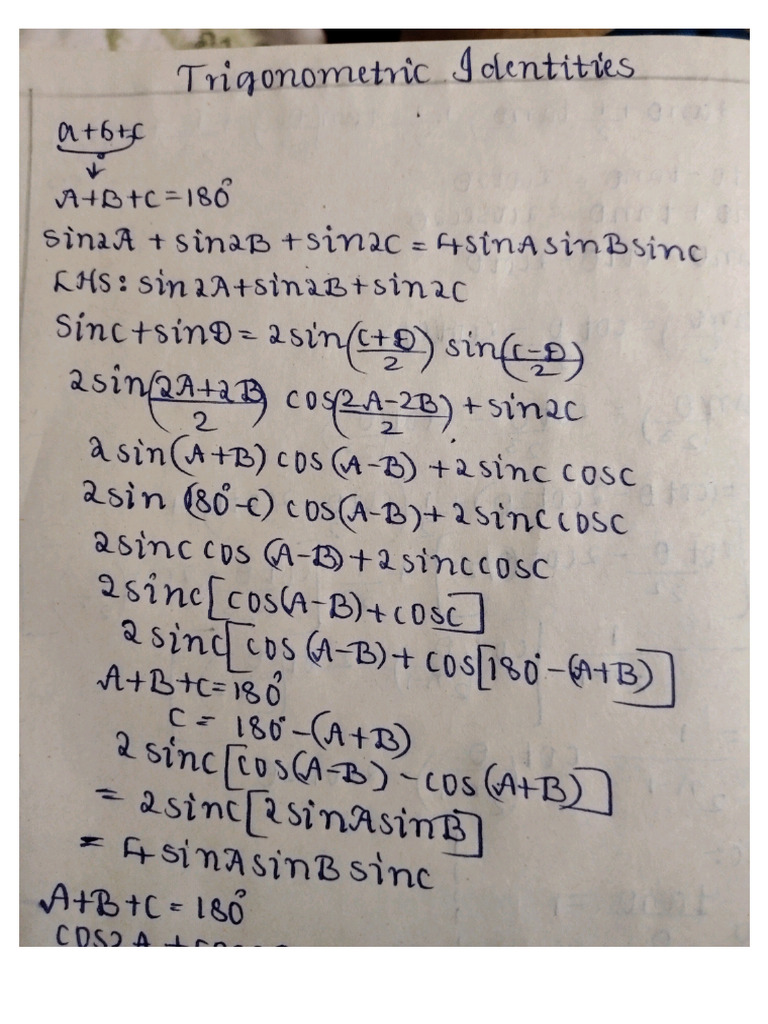 Trigonometric Identities
a+b+c
A+B+C=180°
sin2A + sin2B + sin2C = 4sinAsinBsinC
LHS: sin2A+sin2B+sin2C
Sinc+sinD = 2sin(C+D/2) sin(C-D/2)
2sin(2A+2B/2) cos(2A-2B/2) + sin2C
2sin(A+B) cos(A-B) + 2sinc cosc
2sin (180°-C) cos(A-B)+2sinccosc
2sinccos (A-B)+2sinccosc
2sinc[cos(A-B)+cosc]
2sinc[cos (A-B)+ cos[180°-(A+B)]
A+B+C=180°
C = 180°-(A+B)
2sinc[cos(A-B)-cos(A+B)]
= 2sinc[2sinAsinB]
= 4sinAsinBsinc
A+B+C = 180°
cos2A +